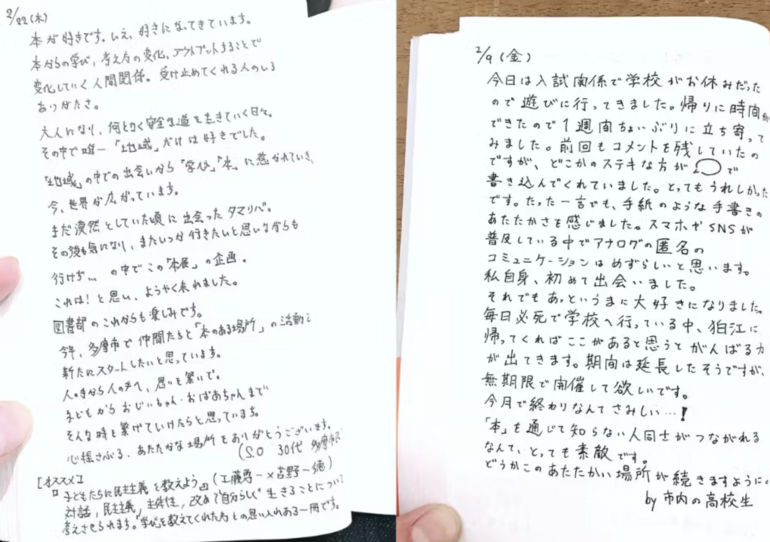 2/22(木)
本が好きです。いえ、好きになってきています。
本からの学び、考え方の変化、アウトプットすることで
変化していく人間関係。受け止めてくれる人のいる
ありがたさ。
大人になり、何となく安全な道を生きていく日々。
その中で唯一「地域」だけは好きでした。
「地域」の中での出会いから「学び」「本」に惹かれていき、
今、世界が広がっています。
まだ漠然としていた頃に出会ったタマリバ。
その後も気になり、またいつか行きたいと思いながらも
行けず... の中でこの「本展」の企画。
これは!と思い、ようやく来れました。
図書部のこれからも楽しみです。
今年、多摩市で仲間たちと「本のある場所」の活動を
新たにスタートしたいと思っています。
人の手から人の手へ、思いを繋いで。
子どもからおじいちゃん・おばあちゃんまで
そんな時を繋げていけたらと思っています。
心揺さぶる、あたたかな場所をありがとうございます。
(S.O 30代 多摩市)
[オススメ]
『子どもたちに民主主義を教えよう』(工藤勇一×苫野一徳)
対話、民主主義、主体性、改めて"自分らしく"生きることについて
考えさせられます。"学び"を教えてくれた方との思い入れある一冊です。
2/9(金)
今日は入試関係で学校がお休みだった
ので遊びに行ってきました。帰りに時間が
できたので1週間ちょいぶりに立ち寄って
みました。前回もコメントを残していたの
ですが、どこかのステキな方が で
書き込んでくれていました。とってもうれしかった
です。たった一言でも、手紙のような手書きの
あたたかさを感じました。スマホやSNSが
普及している中でアナログの匿名の
コミュニケーションはめずらしいと思います。
私自身、初めて出会いました。
それでもあっというまに大好きになりました。
毎日必死で学校へ行っている中、狛江に
帰ってくればここがあると思うとがんばる力
が出てきます。期間は延長したそうですが、
無期限で開催して欲しいです。
今月で終わりなんてさみしい...!
「本」を通じて知らない人同士がつながれる
なんて、とっても素敵です。
どうかこのあたたかい場所が続きますように。
by 市内の高校生